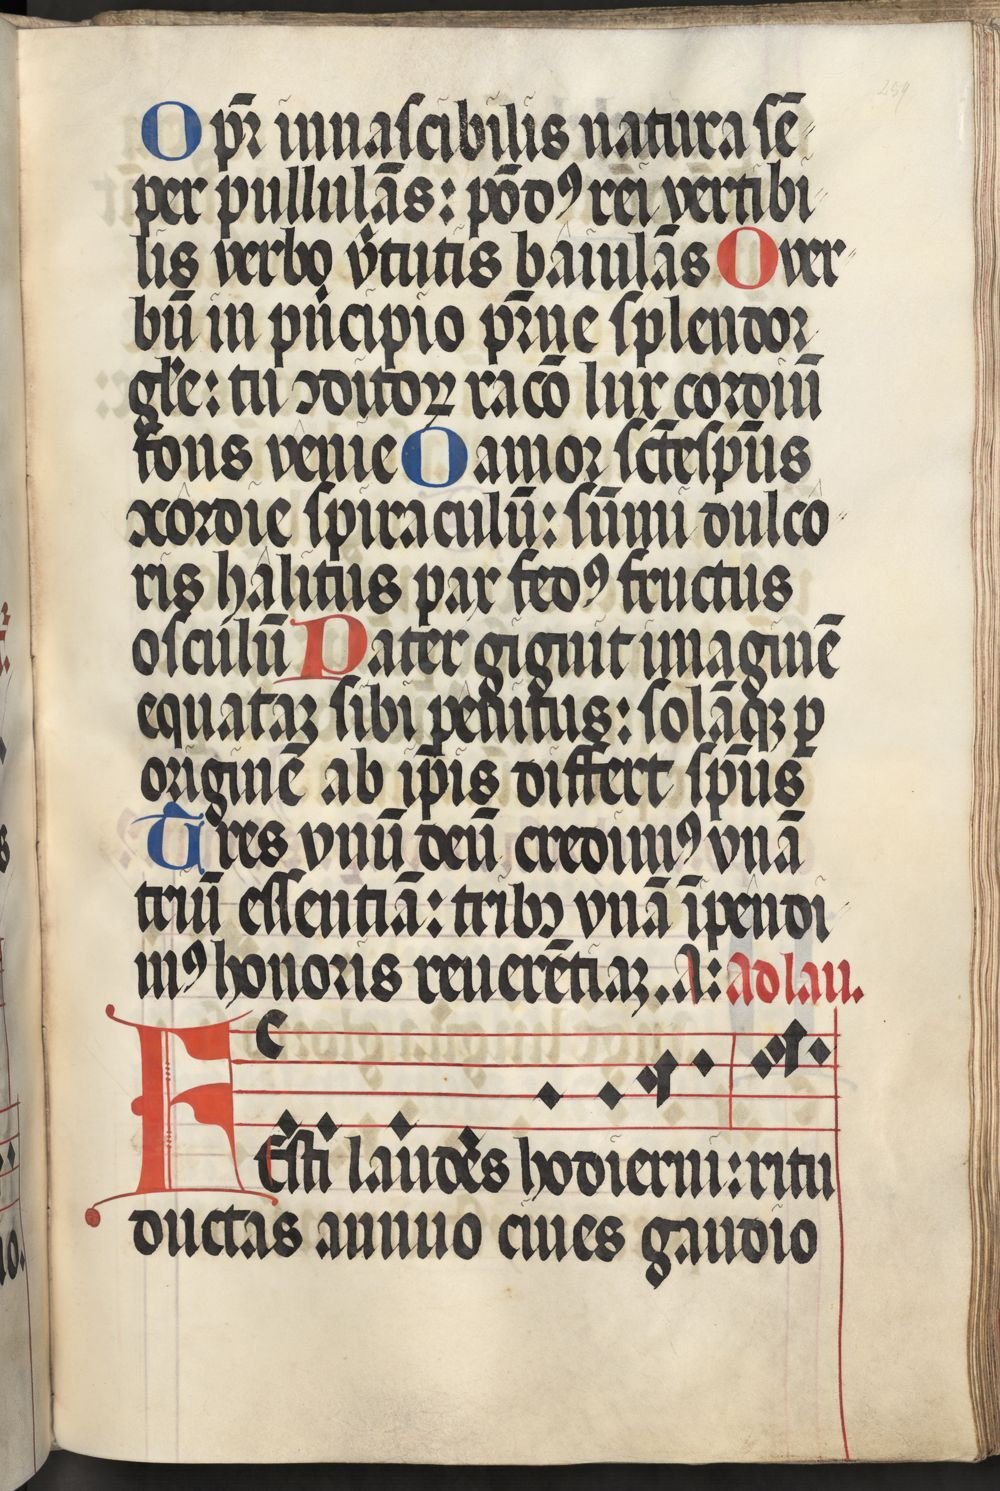 259
O pr̄ innascibilis natura sē
per pullulās: pōdꝰ rei vertibi
lis verbo v̓tutis baiulās O ver
bū in pn̓cipio pr̄ne splendor
gl̓e: tu ↄditoꝝ racō lux cordiū
fons venie O amor sctēspūs
xordie spiraculū: sūmi dulco
ris halitus pax fedꝰ fructus
osculū Pater gignit imaginē
equataꝫ sibi penitus: solāqꝫ ꝑ
originē ab ip̄is differt spūs
Tres vnū deū credimꝰ vnā
triū essentiā: tribꝫ vnā īpendi
mꝰ honoris reuerētiaꝫ. A: ad lau.
FEsti laudes hodierni: ritu
ductas annuo ciues gaudio